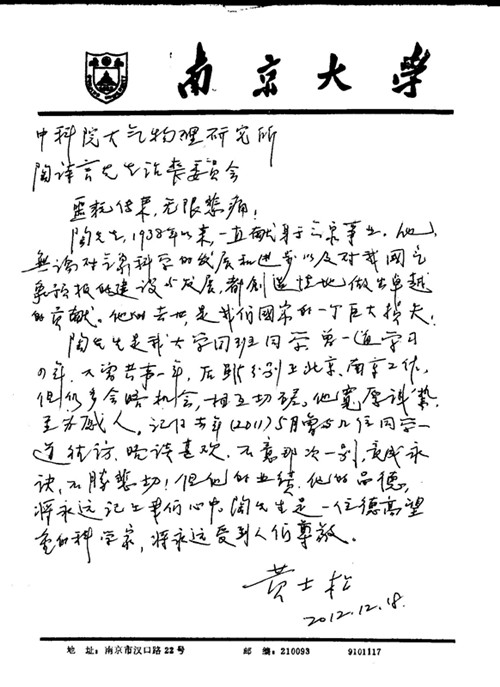 南京大学
中科院大气物理研究所
陶诗言先生治丧委员会
噩耗传来,无限悲痛!
陶先生,1938年以来,一直献身于气象事业。他,
无论对气象科学的发展和进步以及对我国气
象预报的建设与发展,都创造性地做出卓越
的贡献。他的去世,是我们国家的一个巨大损失。
陶先生是我大学同班同学,曾一道学习
四年,又曾共事一年,后虽分别在北京、南京工作,
但仍多会晤机会,相互切磋。他宽厚诚挚,
至为感人。记得去年(2011)5月曾与几位同学一
道往访,晤谈喜欢,不意那次一别,竟成永
诀,不胜悲切!但他的业绩,他的品德,
将永远记在我们心中。陶先生是一位德高望
重的科学家,将永远受到人们尊敬。
黄士松
2012.12.18.
地 址:南京市汉口路22号 邮 编:210093 9101117